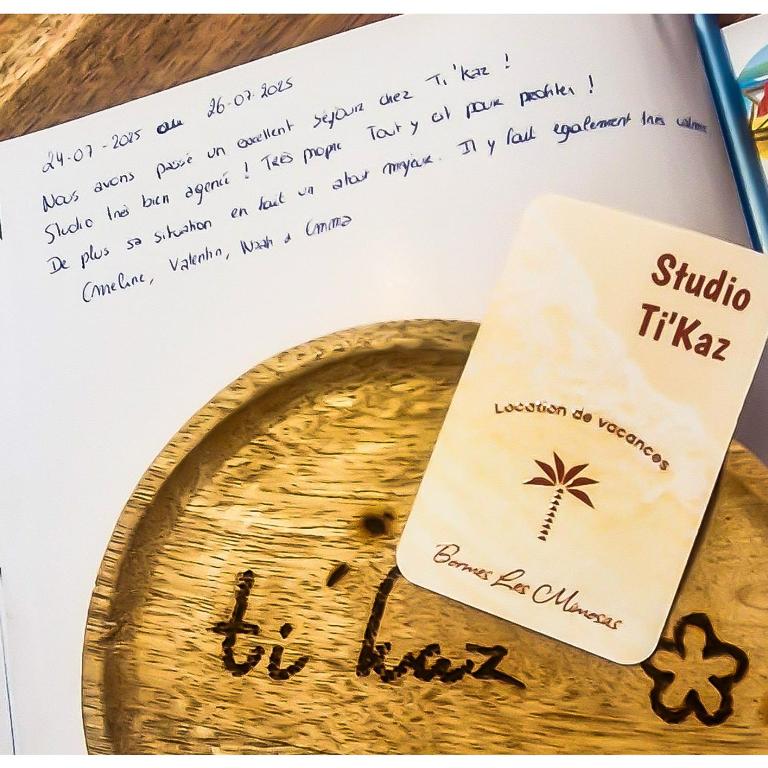 24-07-2025 au 26-07-2025
Nous avons passé un excellent séjour chez Ti'Kaz !
Studio très bien agencé ! Très propre Tout y est pour profiter !
De plus sa situation en fait un atout majeur. Il y fait également très calme
Emeline, Valentin, Noah & Emma
Studio
Ti'Kaz
Location de vacances
Bormes Les Mimosas
ti'kaz